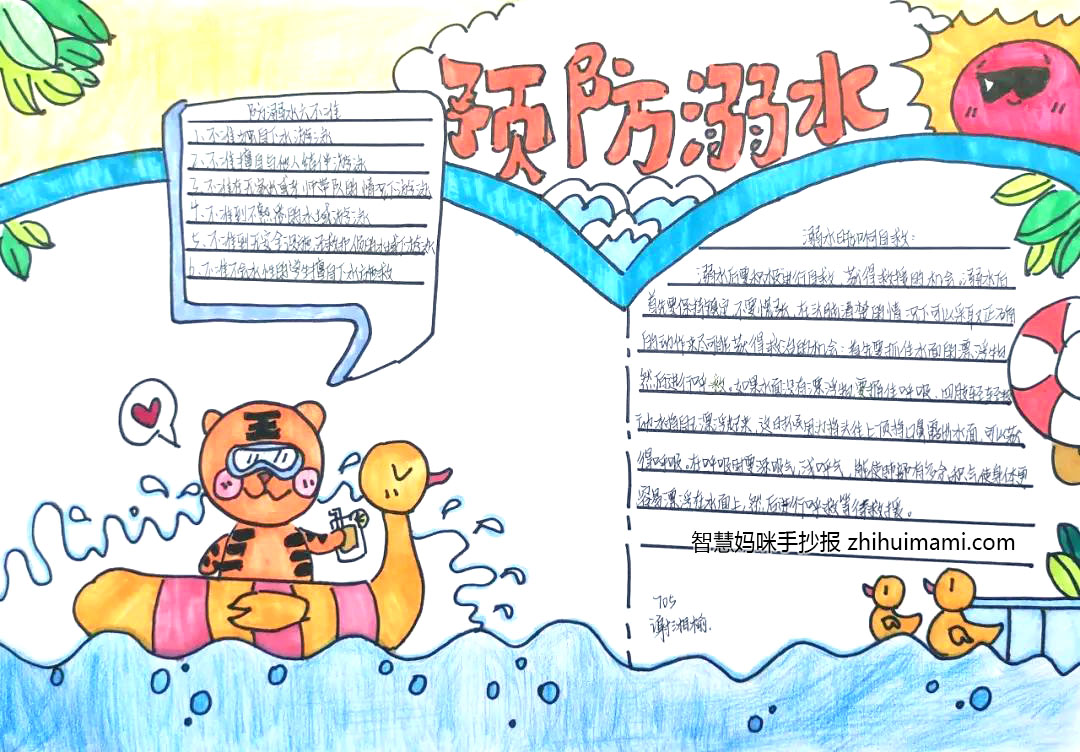 预防溺水
防溺水六不准
1、不准私自下水游泳
2、不准擅自与他人结伴游泳
3、不准在无家长或教师带队的情况下游泳
4、不准到不熟悉的水域游泳
5、不准到无安全设施、无救护人员的水域游泳
6、不准不会水性的学生擅自下水施救
溺水时如何自救:
溺水后要积极进行自救,获得救援的机会。溺水后
首先要保持镇定,不要慌张,在头脑清楚的情况下可以采取正确
的动作来尽可能获得救治的机会:首先要抓住水面的漂浮物
然后进行呼救。如果水面没有漂浮物,要捂住呼吸、四肢轻轻
动水将自己漂浮起来,这时采用力将头往上顶将口鼻露出水面,可以获
得呼吸。在呼吸时要深吸气,浅呼气,能使肺部有多余积气使身体更
容易漂浮在水面上,然后进行呼救等待救援。
智慧妈咪手抄报 zhihuimami.com
705
谢湘榆.